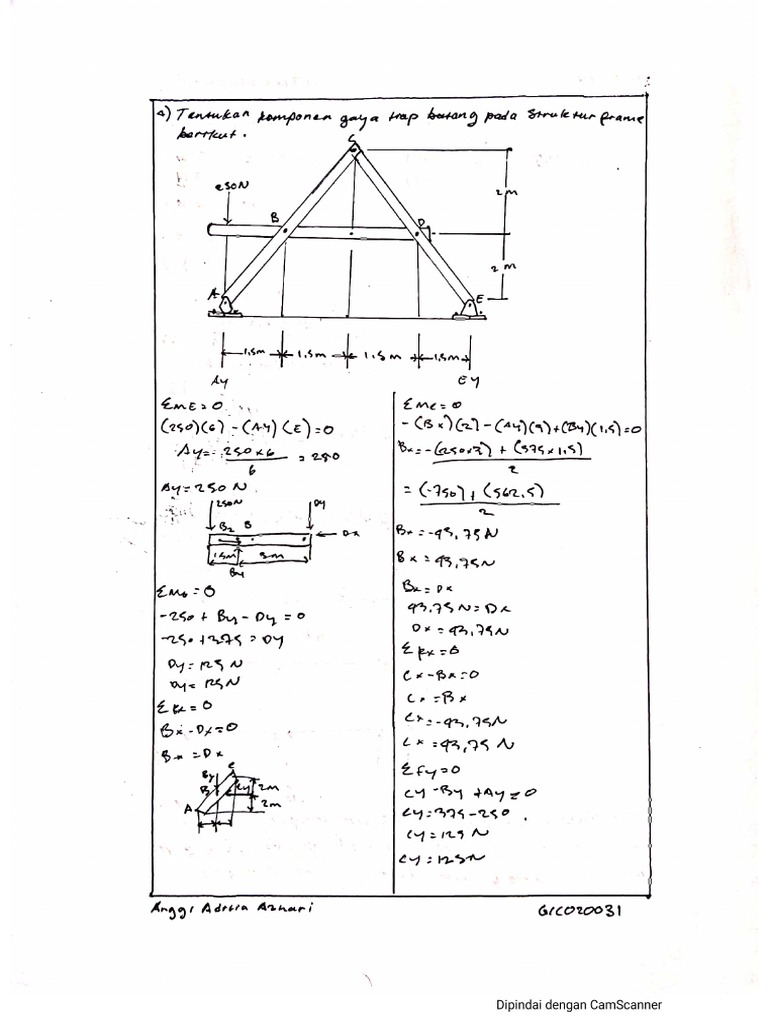 4) Tentukan komponen gaya tiap batang pada Struktur frame
berikut.
C
250N
2 m
B
D
2 m
A
E
1,5m 1,5m 1,5m 1,5m
Ay
Ey
ΣME=0
(250)(6) - (Ay)(E)=0
Ay= 250x6 = 250
6
Ay=250 N
250N
Dy
B
Dx
1,5m
3m
By
= 0
-250 + By - Dy = 0
-250 + 375 = Dy
Dy = 125 N
Dy = 125 N
ΣFx = 0
Bx - Dx = 0
Bx = Dx
C
By
B
Cy
2m
A
2m
ΣMC=0
-(Bx)(2) - (Ay)(3) + (By)(1,5)=0
Bx=-(250x3) + (375x1,5)
2
= (-750) + (562,5)
2
Bx = -93,75N
Bx = 93,75N
Bx = Dx
93,75 N = Dx
Dx = 93,75N
ΣFx=0
Cx-Bx=0
Cx = Bx
Cx = -93,75N
Cx = 93,75 N
ΣFy=0
Cy -By +Ay = 0
Cy = 375-250
Cy = 125 N
Cy = 125N
Anggi Aditia Azhari
G1C020031
Dipindai dengan CamScanner